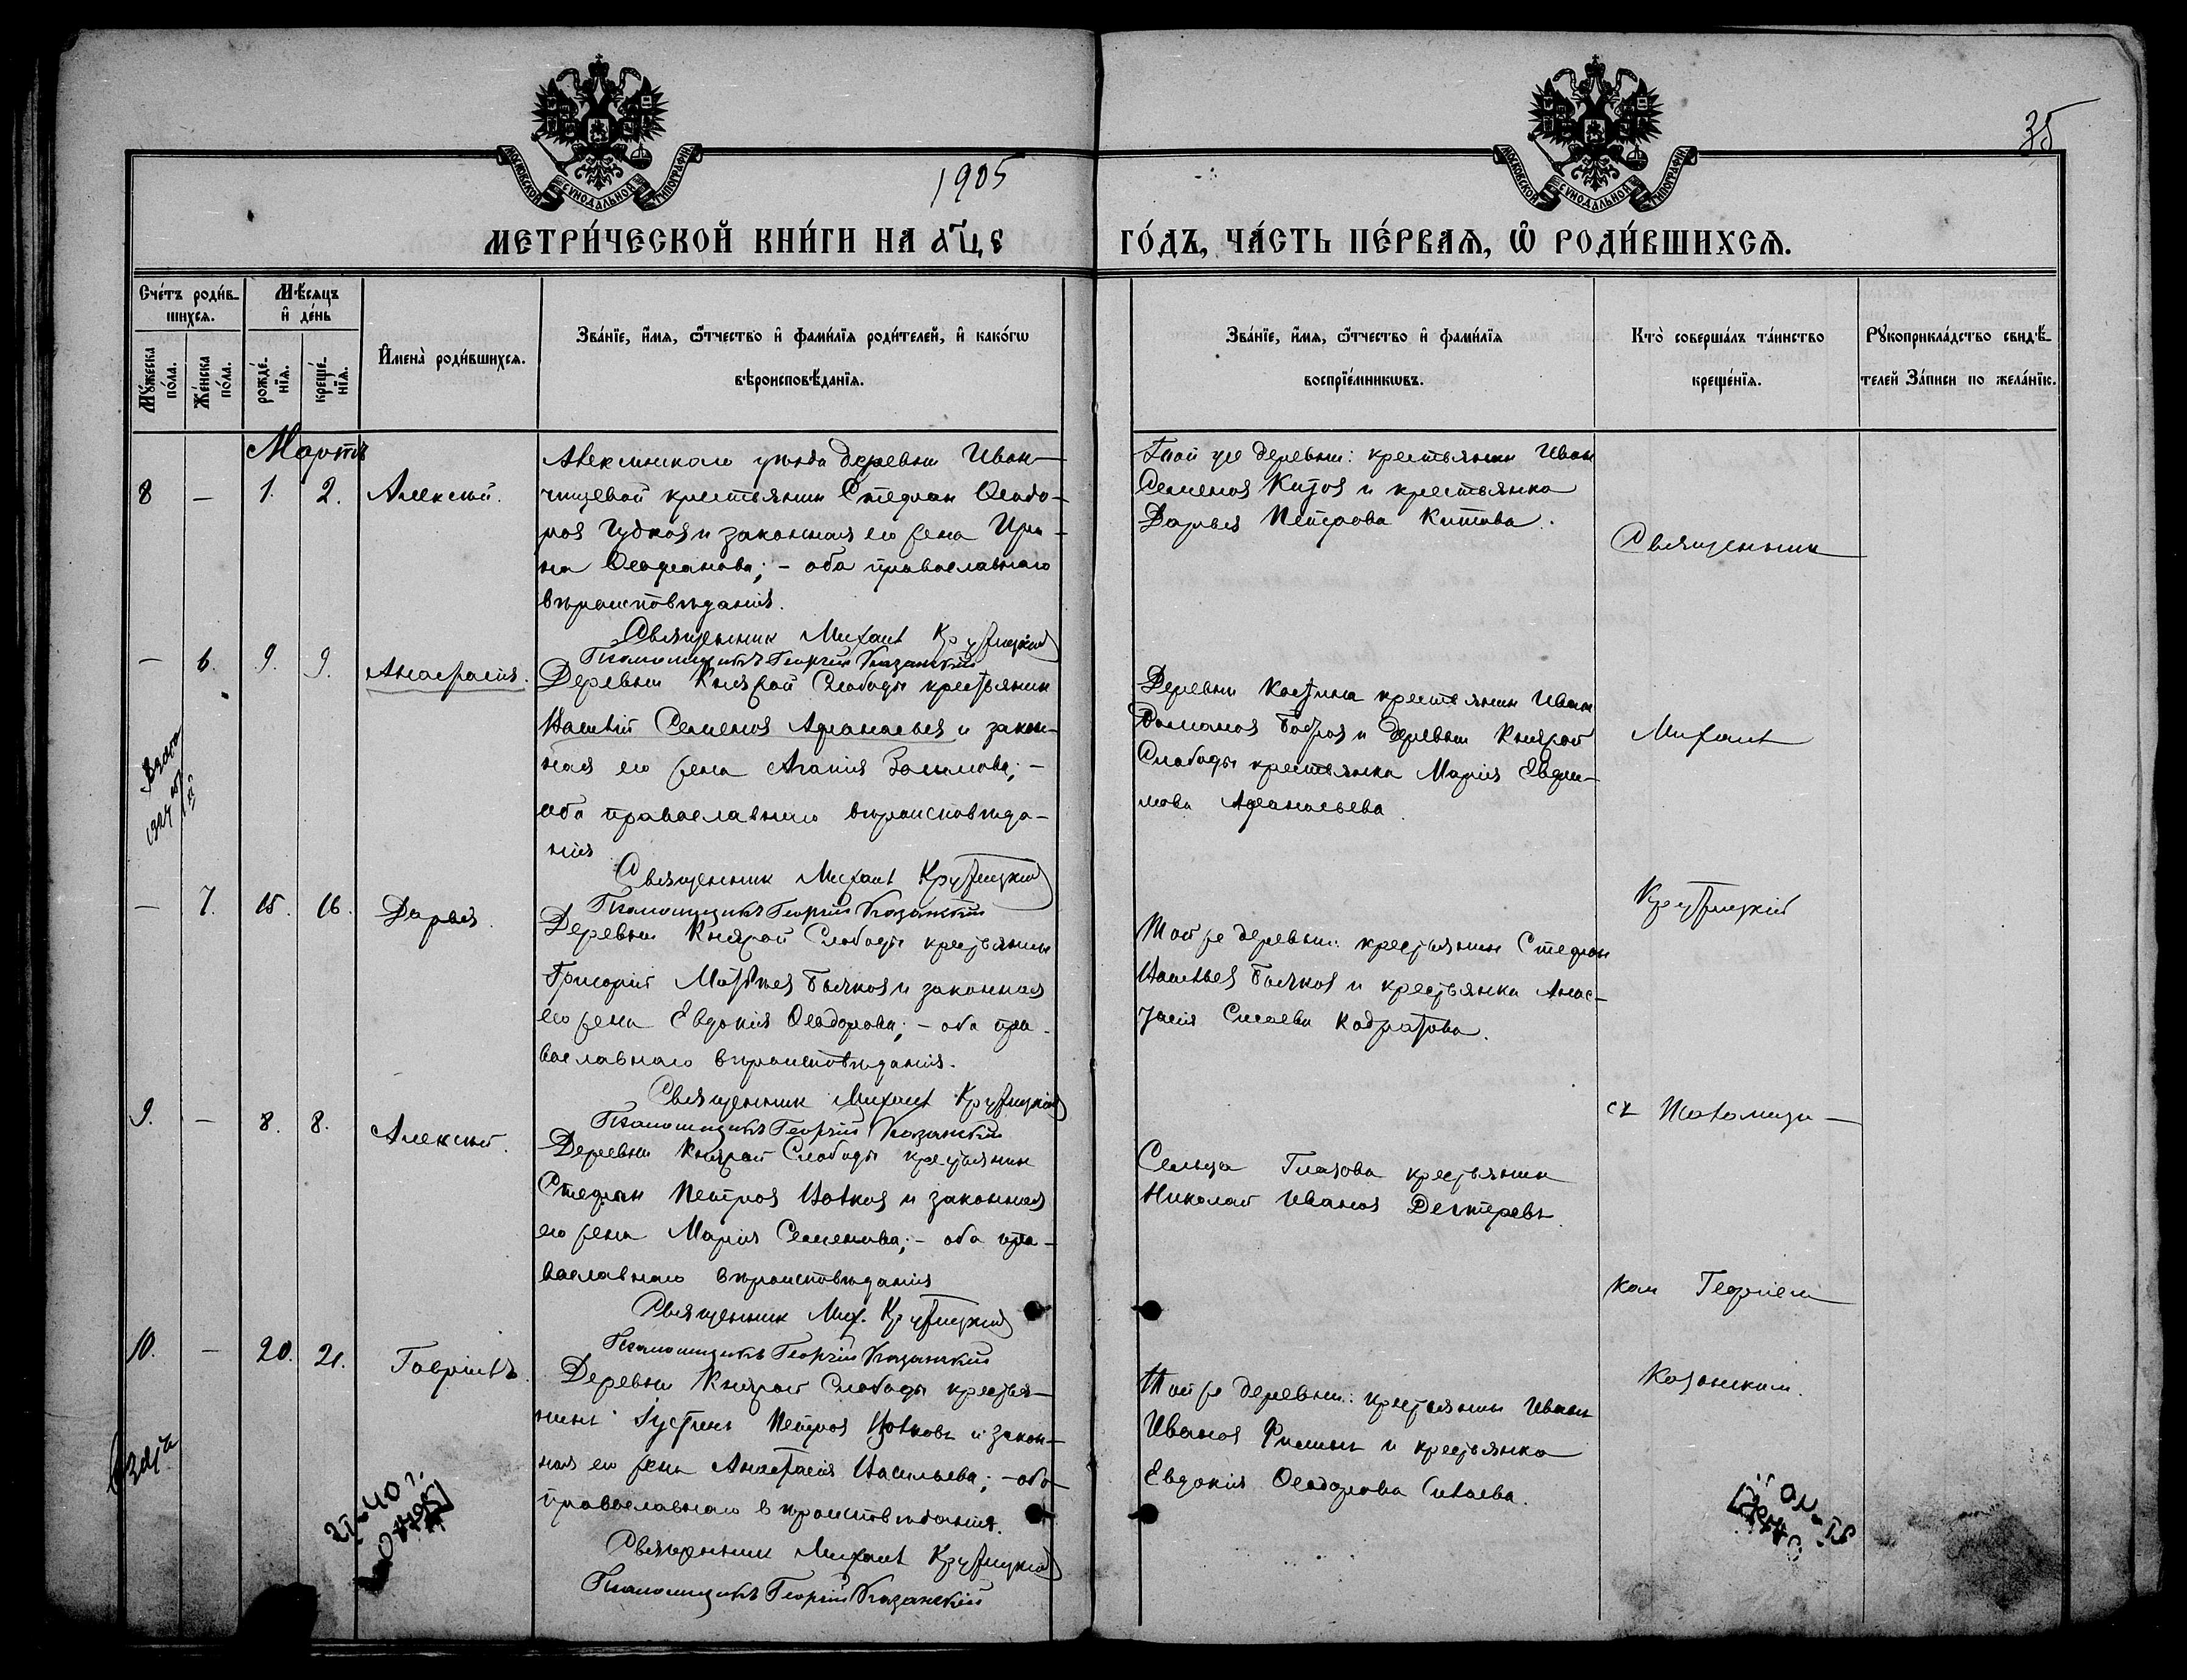 35
МОСКОВСКОЙ СѴНОДАЛЬНОЙ ТИПОГРАФІИ
МОСКОВСКОЙ СѴНОДАЛЬНОЙ ТИПОГРАФІИ
1905
МЕТРИ́ЧЕСКОЙ КНИ́ГИ НА
ГО́ДЪ, ЧА́СТЬ ПЕ́РВАѦ, Ѡ҆ РОДИ́ВШИХСѦ.
Сче́тъ роди́в-
шихсѧ.
Мꙋ́жеска по́ла.
Же́нска по́ла.
Мѣ́сѧцъ
и҆ де́нь
рожде́-
нїѧ.
креще́-
нїѧ.
И҆мена̀ роди́вшихсѧ.
Зва́нїе, и҆́мѧ, ѻ҆́тчество и҆ фами́лїѧ роди́телей, и҆ како́гѡ
вѣроисповѣ́данїѧ.
Зва́нїе, и҆́мѧ, ѻ҆́тчество и҆ фами́лїѧ
воспрїе́мникѡвъ.
Кто̀ соверша́лъ та́инство
креще́нїѧ.
Рꙋкоприкла́дство свидѣ́-
телей за́писи по жела́нїю.
Мартъ
8
—
1.
2.
Алексѣй.
Алексинскаго уѣзда деревни Иван-
чищевой крестьянин Стефан Ѳеодо-
ров Гудков и законная его жена Ири-
на Ѳеофанова; - оба православнаго
вѣроисповѣданія.
Священник Михаил Крутицкій
Псаломщикъ Георгій Казанскій
Той же деревни: крестьянин Иван
Семенов Китов и крестьянка
Дарья Петрова Китова.
—
6.
9.
9.
Анастасия.
Деревни Княжой Слободы крестьянин
Василій Семенов Афанасьев и закон-
ная его жена Агапія; -
оба православнаго вѣроисповѣда-
нія
Священник Михаил Крутицкій
Псаломщикъ Георгій Казанскій
Деревни Костина крестьянин Иван
Бобров и деревни Княжой
Слободы крестьянка Марія Евфи-
мова Афанасьева.
—
7.
15.
16.
Дарья.
Деревни Княжой Слободы крестьянин
Григорій Матвѣев Бычков и законная
его жена Евдокія Ѳеодорова; - оба пра-
вославнаго вѣроисповѣданія.
Священник Михаил Крутицкій
Псаломщикъ Георгій Казанскій
Той же деревни: крестьянин Стефан
Васильев Бычков и крестьянка Анас-
тасія
9.
—
8.
8.
Алексѣй.
Деревни Княжой Слободы крестьянин
Стефан Петров Волков и законная
его жена Марія Семенова; - оба пра-
вославнаго вѣроисповѣданія
Священник Мих. Крутицкій
Псаломщикъ Георгій Казанскій
Сельца Глазова крестьянин
Николай Иванов Дегтеревъ.
10.
—
20.
21.
Гавріилъ.
Деревни Княжой Слободы крестья-
нинъ Іустинъ Петров Волковъ и закон-
ная его жена Анастасія Васильева; - оба
православнаго вѣроисповѣданія.
Священник Михаил Крутицкій
Псаломщикъ Георгій Казанскій
Той же деревни: крестьянин Иван
Иванов Филинъ и крестьянка
Евдокія Ѳеодорова
Священник
Михаил
Крутицкій
съ псаломщи-
ком Георгіем
Казанским.